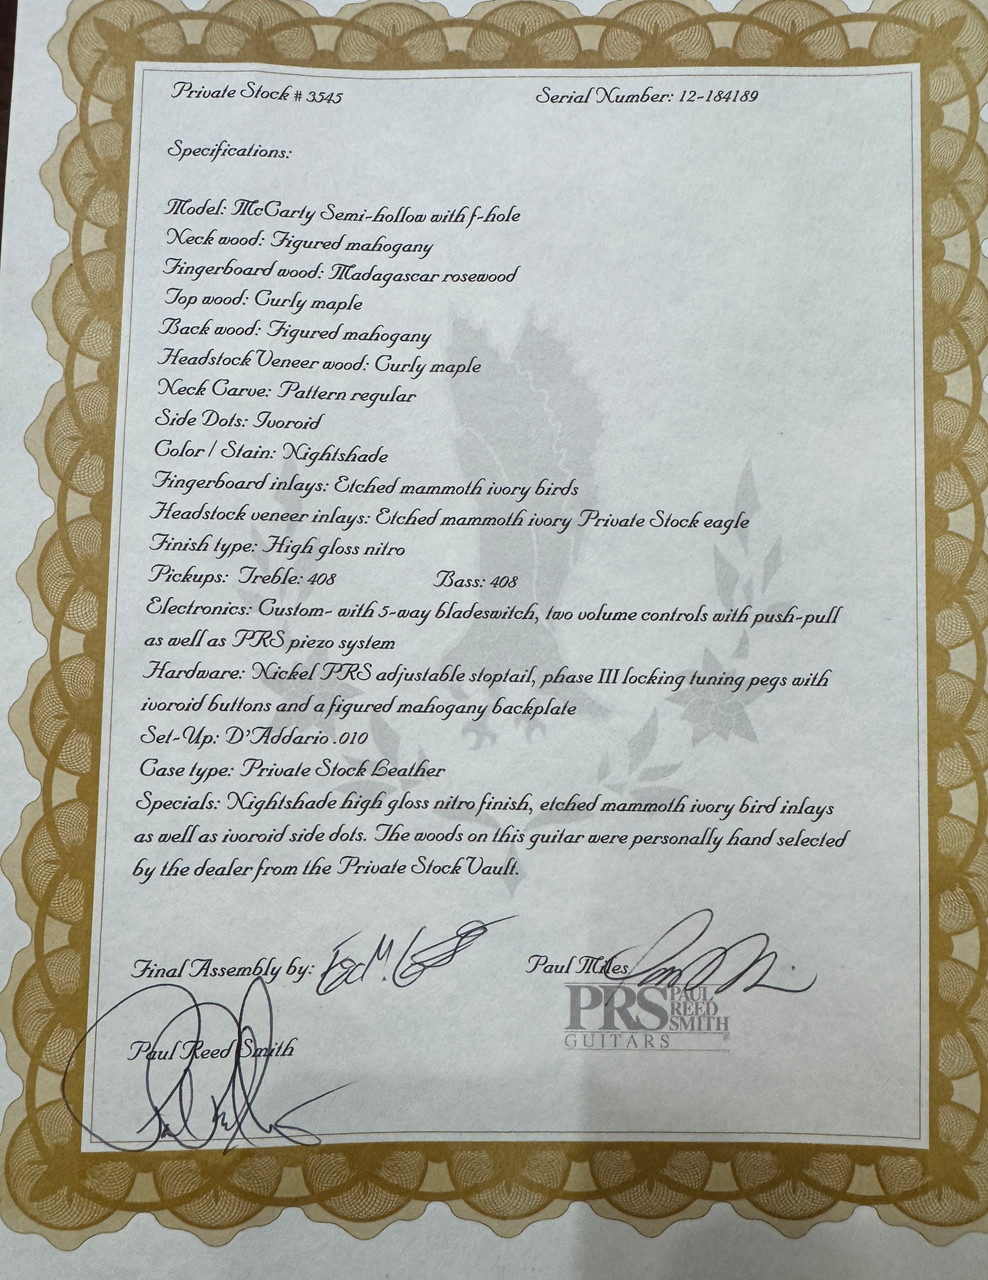 Private Stock # 3545 Serial Number: 12-184189
Specifications:
Model: McCarty Semi-hollow with f-hole
Neck wood: Figured mahogany
Fingerboard wood: Madagascar rosewood
Top wood: Curly maple
Back wood: Figured mahogany
Headstock Veneer wood: Curly maple
Neck Carve: Pattern regular
Side Dots: Ivoroid
Color / Stain: Nightshade
Fingerboard inlays: Etched mammoth ivory birds
Headstock veneer inlays: Etched mammoth ivory Private Stock eagle
Finish type: High gloss nitro
Pickups: Treble: 408 Bass: 408
Electronics: Custom- with 5-way bladeswitch, two volume controls with push-pull
as well as PRS piezo system
Hardware: Nickel PRS adjustable stoptail, phase III locking tuning pegs with
ivoroid buttons and a figured mahogany backplate
Set-Up: D'Addario .010
Case type: Private Stock Leather
Specials: Nightshade high gloss nitro finish, etched mammoth ivory bird inlays
as well as ivoroid side dots. The woods on this guitar were personally hand selected
by the dealer from the Private Stock Vault.
Final Assembly by: Paul Miles
PRS PAUL REED SMITH
GUITARS
Paul Reed Smith